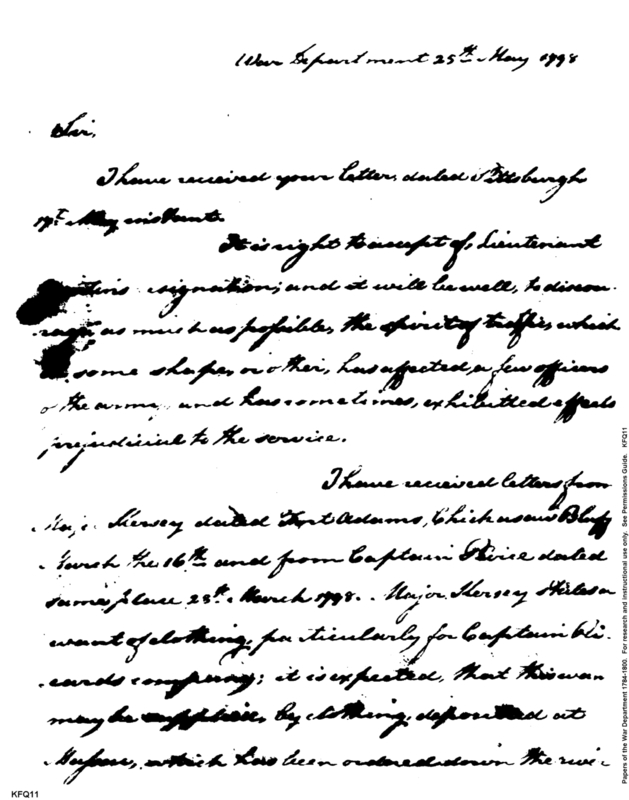 War Department 25th May 1798
Sir,
I have received your letter, dated Pittsburgh
17t May instant.
It is right to accept of, Lieutenant
signation; and it will be well, to discou-
rage as much as possible, the spirit of traffic, which
some shape, or other, has affected, a few officers
of the army and has sometimes, exhibitted effects
prejudicial to the service.
I have received letters from
Major Kersey dated Fort Adams, Chickasaw Bluff
March the 16th and from Captain dated
same place 23d March 1798. Major Kersey states a
want of clothing, particularly for Captain
cards company; it is expected, that this wan
may be supplied, by clothing, deposited at
Massac, which has been ordered down the rive
KFQ11
Papers of the War Department 1784-1800. For research and instructional use only. See Permissions Guide. KFQ11